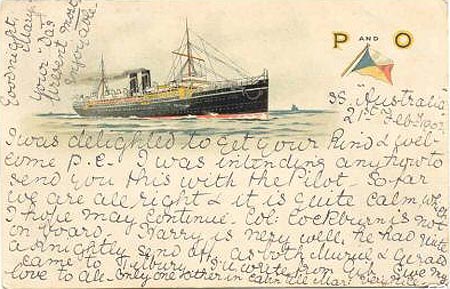 P AND O
SS. "Australia"
21st Feb. 1902
I was delighted to get your kind & wel-
come P.C. I was intending anyhow to
send you this with the Pilot. So far
we are all right & it is quite calm wh.
I hope may continue. Col: Cockburn is not
on board. Harry is very well, he had quite
a knightly send off, as both Muriel & Gerald
came to Tilbury. I'll write from Gib. Give my
love to all. Only one other in cabin all Mar!
Goodnight
Mary
your "Das
most
enjoyable.